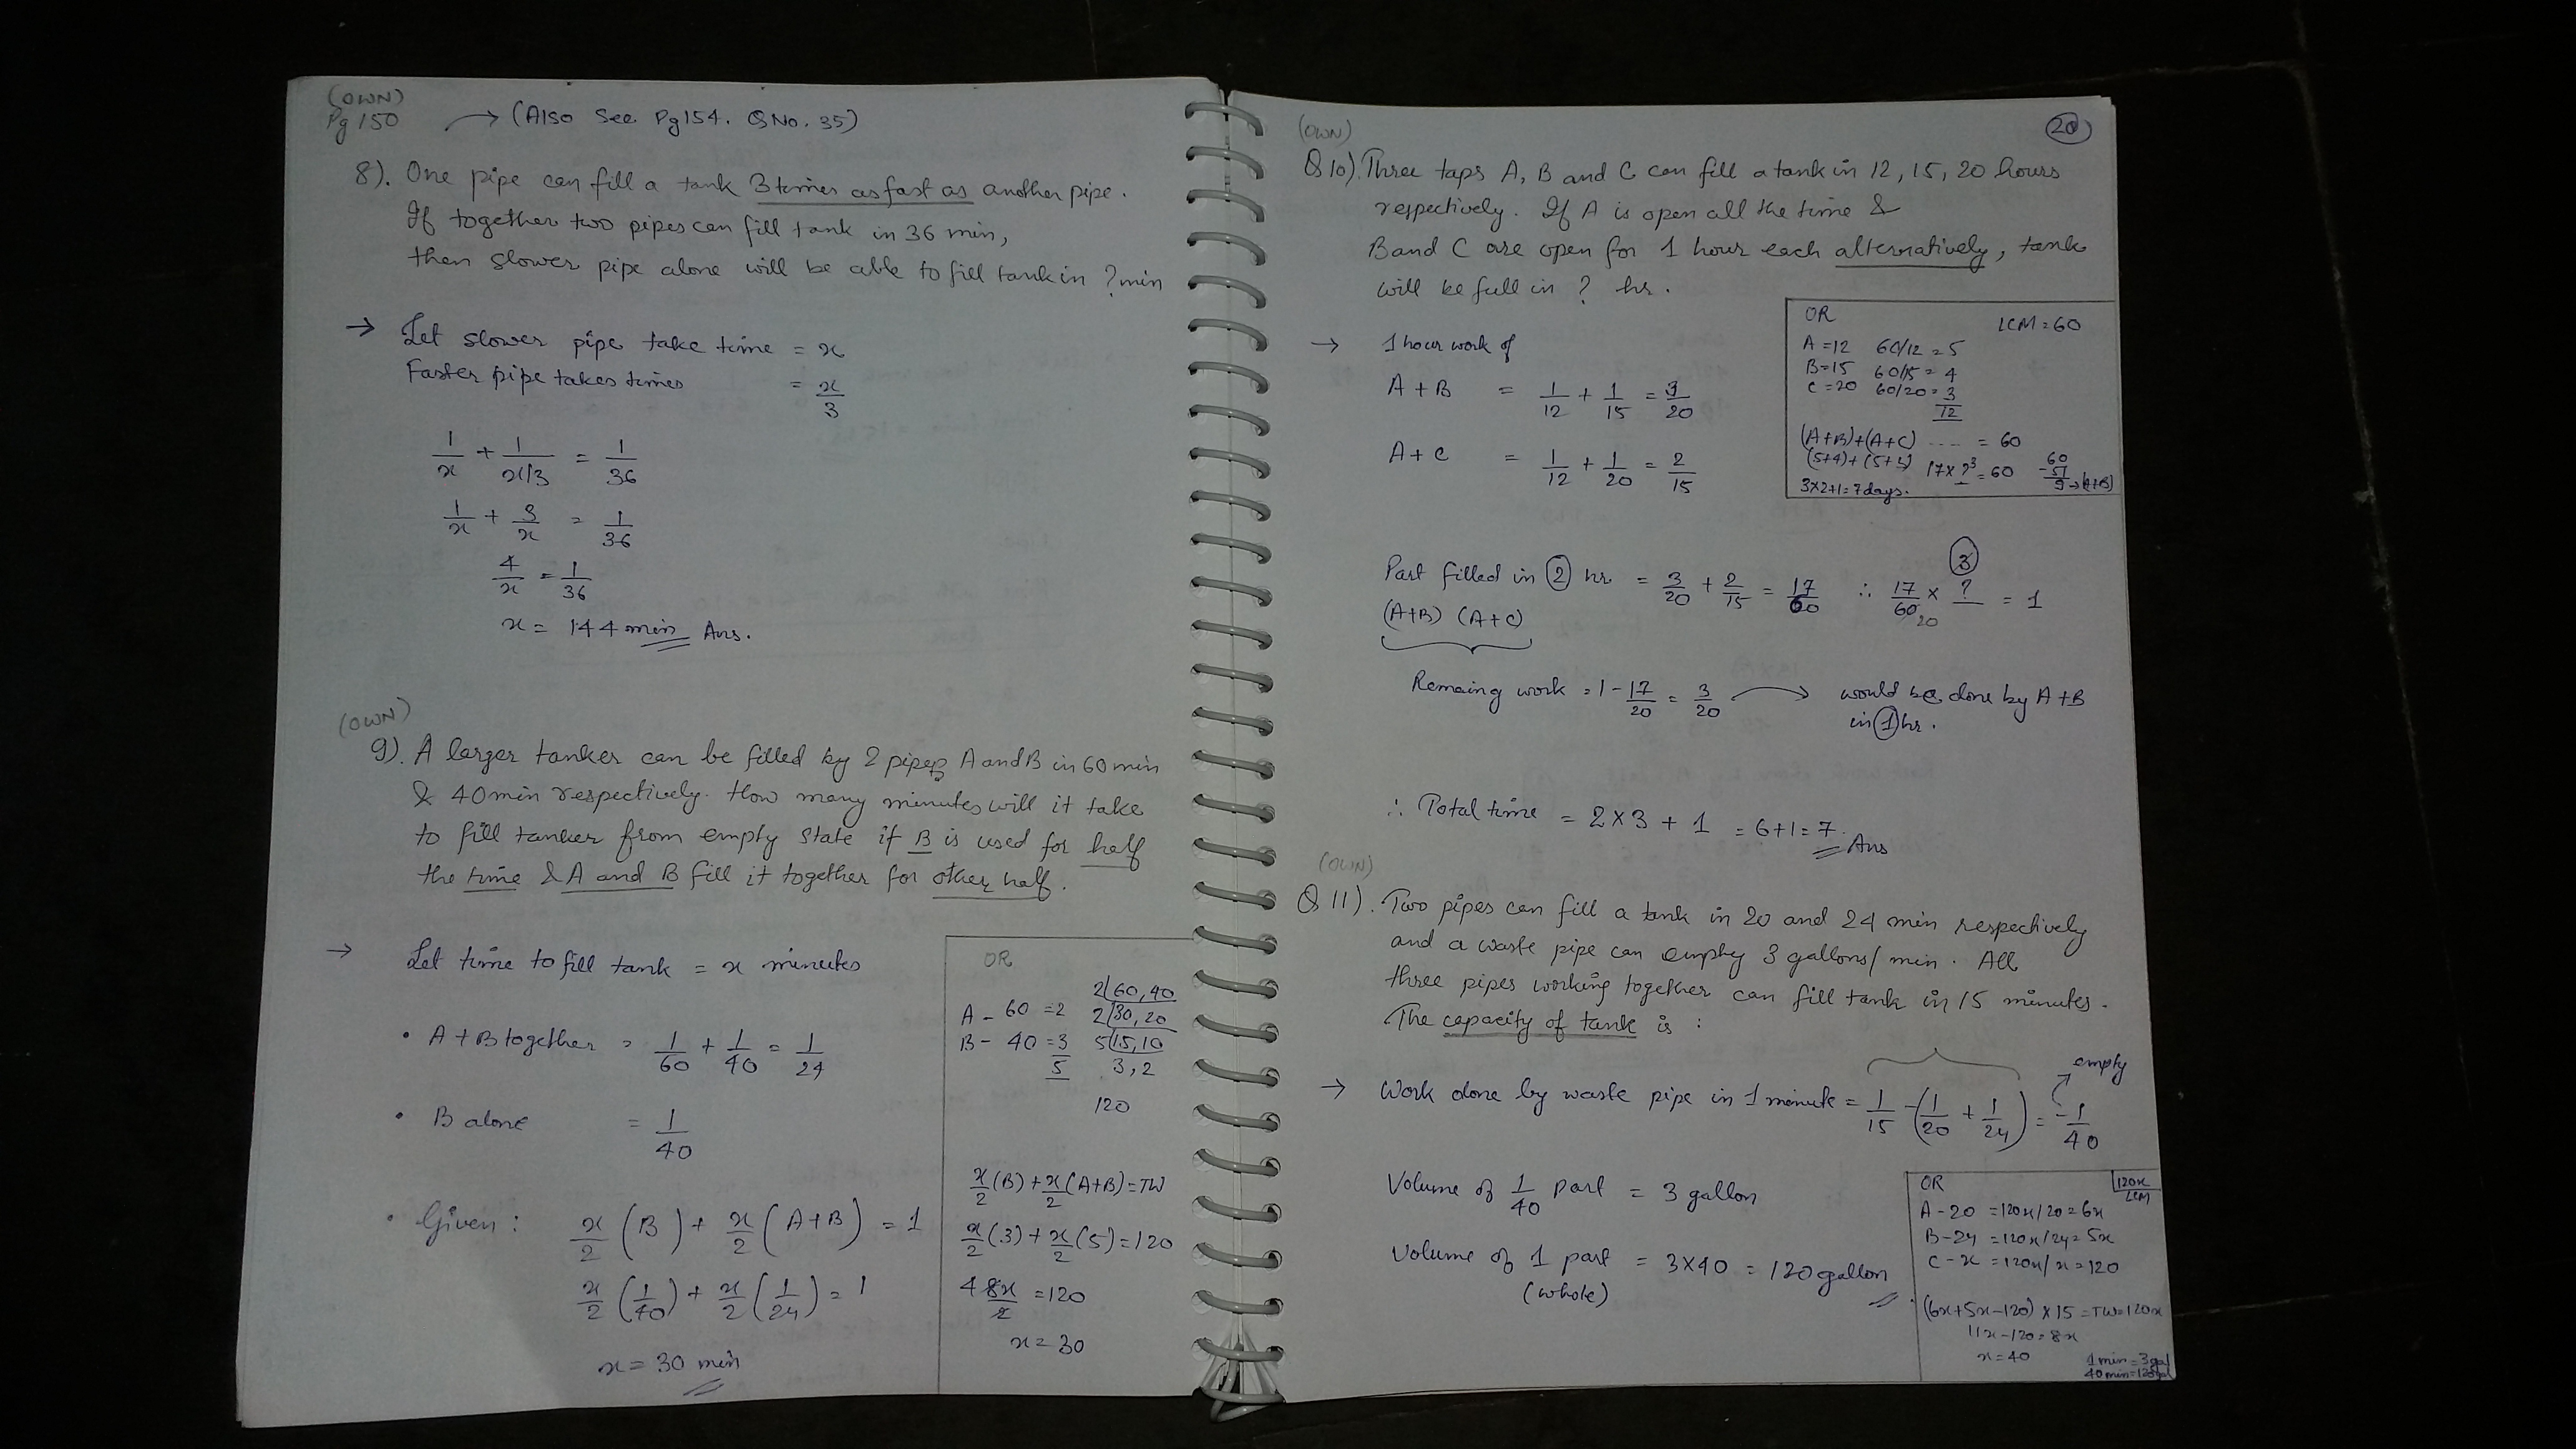 (OWN)
Pg 150 → (Also See Pg154. QNo. 35)
8). One pipe can fill a tank 3 times as fast as another pipe.
If together two pipes can fill tank in 36 min,
then slower pipe alone will be able to fill tank in ? min
→ Let slower pipe take time = x
Faster pipe takes times = x/3
1/x + 1/(x/3) = 1/36
1/x + 3/x = 1/36
4/x = 1/36
x = 144 min Ans.
(OWN)
9). A larger tanker can be filled by 2 pipes A and B in 60 min
& 40 min respectively. How many minutes will it take
to fill tanker from empty state if B is used for half
the time & A and B fill it together for other half.
→ Let time to fill tank = x minutes
• A + B together = 1/60 + 1/40 = 1/24
• B alone = 1/40
• Given : x/2 (B) + x/2 (A+B) = 1
x/2 (1/40) + x/2 (1/24) = 1
x = 30 min
OR
A - 60 = 2
B - 40 = 3
5
2|60,40
2|30,20
5|15,10
3,2
120
x/2 (B) + x/2 (A+B) = TW
x/2 (3) + x/2 (5) = 120
4 8x/2 = 120
x = 30
(OWN)
20
Q 10). Three taps A, B and C can fill a tank in 12, 15, 20 hours
respectively. If A is open all the time &
B and C are open for 1 hour each alternatively, tank
will be full in ? hr.
→ 1 hour work of
A + B = 1/12 + 1/15 = 3/20
A + C = 1/12 + 1/20 = 2/15
OR LCM = 60
A = 12 60/12 = 5
B = 15 60/15 = 4
C = 20 60/20 = 3
12
(A+B)+(A+C) .... = 60
(5+4)+(5+3) 17 x ?3 = 60
60
-51
9 → (A+B)
3x2+1 = 7 days.
Part filled in 2 hr = 3/20 + 2/15 = 17/60 ∴ 17/60 x ? = 1
3
20
(A+B) (A+C)
Remaing work = 1 - 17/20 = 3/20 → would be done by A+B
in 1 hr.
∴ Total time = 2 x 3 + 1 = 6+1 = 7 Ans
(OWN)
Q 11). Two pipes can fill a tank in 20 and 24 min respectively
and a waste pipe can empty 3 gallons/min. All
three pipes working together can fill tank in 15 minutes.
The capacity of tank is :
→ Work done by waste pipe in 1 minute = 1/15 - (1/20 + 1/24) = -1/40
empty
Volume of 1/40 part = 3 gallon
Volume of 1 part = 3x40 = 120 gallon
(whole)
OR 120x
LCM
A - 20 = 120x/20 = 6x
B - 24 = 120x/24 = 5x
C - x = 120x/x = 120
(6x+5x-120) x 15 = TW = 120x
11x - 120 = 8x
x = 40
1 min = 3 gal